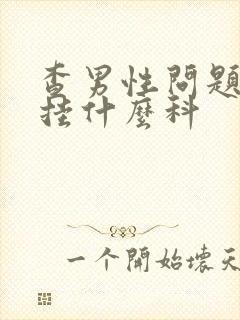 查男性問題
挂什麼科
一个開始壞天